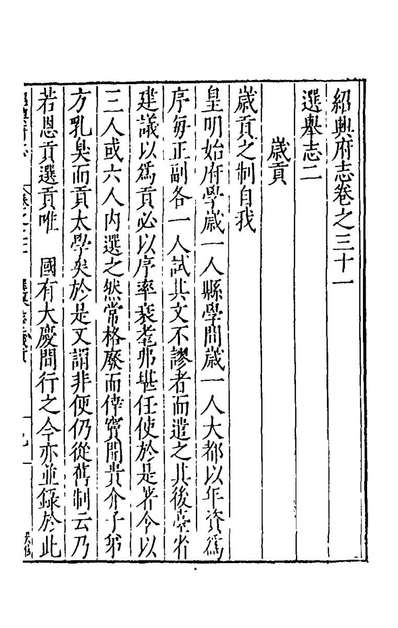 紹興府志卷之三十一
選舉志二
歲貢
歲貢之制自我
皇明始府學歲一人縣學間歲一人大都以年資爲
序每正副各一人試其文不謬者而遣之其後臺省
建議以爲貢必以序率衰耄弗堪任使於是著令以
三人或六人內選之然常格廢而倖竇開貴介子弟
方乳臭而貢太學矣於是又謂非便仍從舊制云乃
若恩貢選貢唯　國有大慶間行之今亦並錄於此